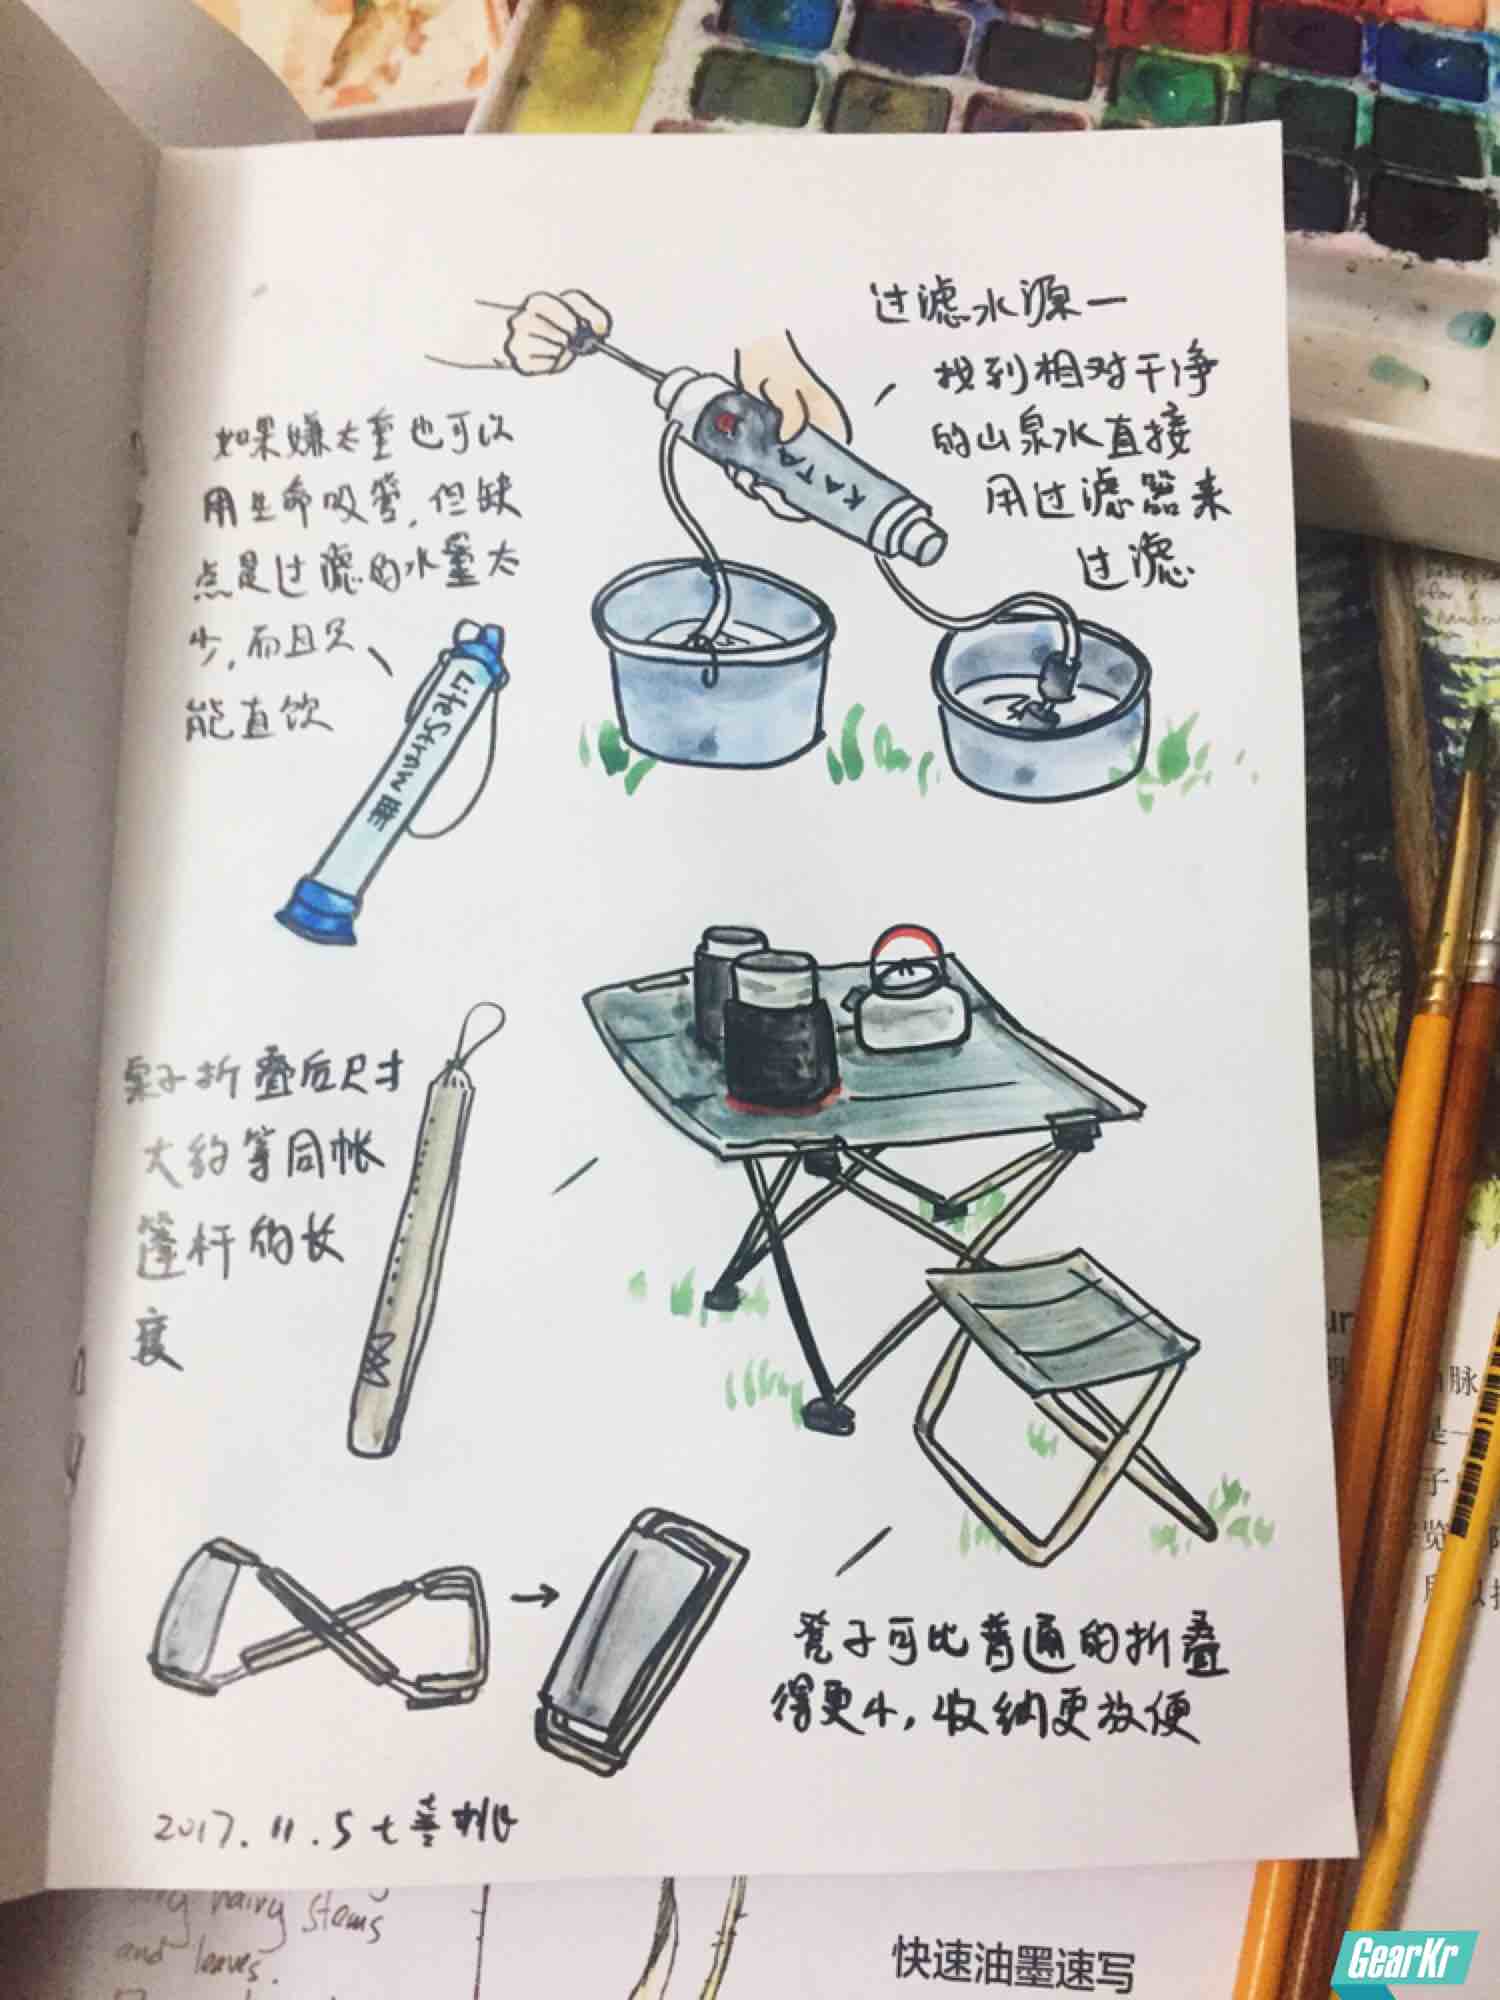 过滤水源一
找到相对干净
的山泉水直接
用过滤器来
过滤
KATA
如果嫌太重也可以
用生命吸管,但缺
点是过滤的水量太
少,而且只
能直饮
LifeStraw
桌子折叠后尺寸
大约等同帐
篷杆的长
度
凳子可比普通的折叠
得更小,收纳更放便
2017.11.5 七喜桃
hairy stems
and leaves.
快速油墨速写
GearKr